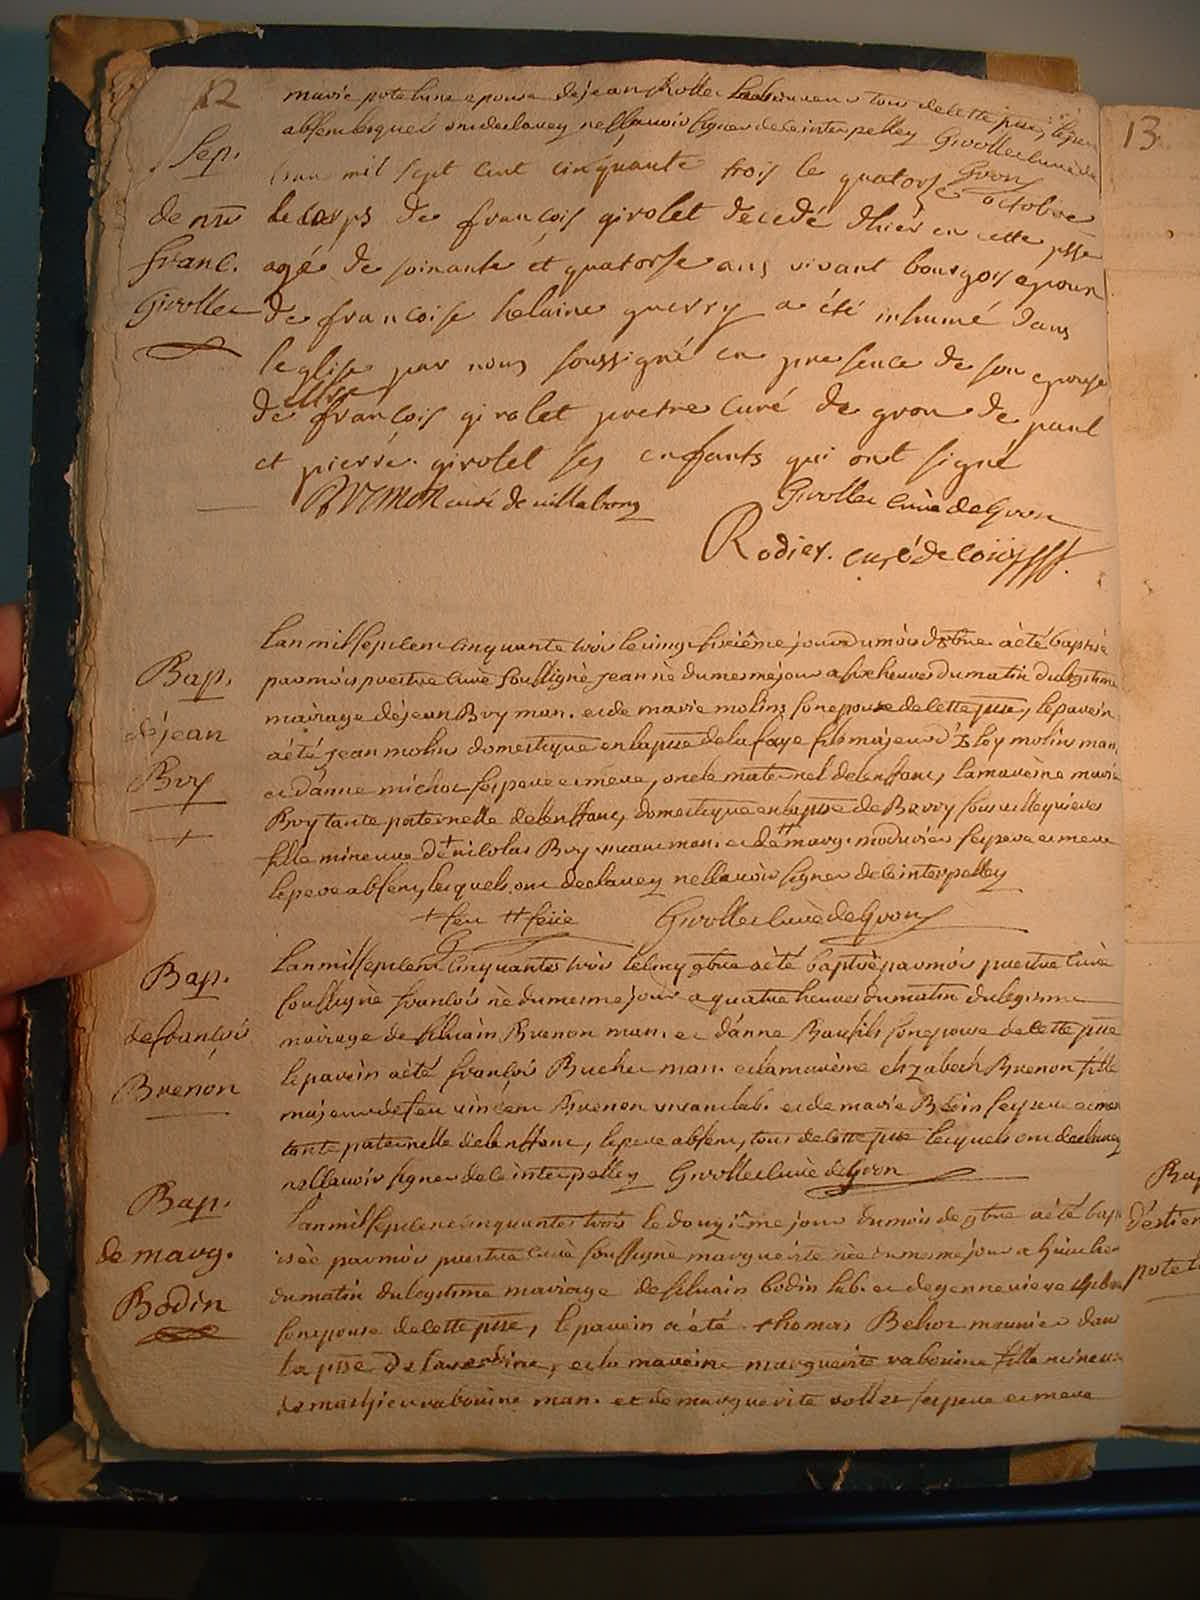 12
marie potelune epouse de jean Rollec laboureur tous de cette psse, le pere
absent lesquels ont declarez ne sçavoir signer de ce interpellez Girollet curé de
Gron
Sep.
de mre
franc.
Girollet
lan mil sept cent cinquante trois le quatorse octobre
le corps de françois girolet decedé dhier en cette psse
agé de soixante et quatorse ans vivant bourgois epoux
de françoise helaine guerry a été inhumé dans
leglise par nous soussigné en presence de son epouse
de mre françois girolet prestre curé de gron de paul
et pierre girolet ses enfants qui ont signé
curé de villabon
Girollet curé de Gron
Rodier. curé de
Bap.
de jean
Bry
+
lan mil sept cent cinquante trois le vingt sixième jour du mois d'8bre a été baptisé
par moi prestre curé soussigné jean né du mesme jour a six heures du matin du legitime
mairiage de jean Bry man. et de marie molins son epouse de cette psse, le parein
a été jean molin domestique en la psse de la faye fils majeur d' loy molin man.
et d'anne michoc ses pere et mere, oncle maternel de lenffant, la mareine marie
Bry tante paternelle de lenffant, domestique en la psse de Barry sous villequieres
fille mineure de + nicolas Bry vivant man. et de ++ marg. ses pere et mere
le pere absent, lesquels ont declarez ne sçavoir signer de ce interpellez
+ feu ++ feüe Girollet curé de Gron
Bap.
de françois
Brenon
Lan mil sept cent cinquante trois le cinq 9bre a été baptisé par moi prestre curé
soussigné françois né du mesme jour a quatre heures du matin du legitime
mairiage de silvain Brenon man. et d'anne Baufils son epouse de cette psse
le parein a été françois Buchet man. et la mareine elizabeth Brenon fille
majeure de feu vincent Brenon vivant lab. et de marie Blein ses pere et mere
tante paternelle de lenffant, le pere absent, tous de cette psse lesquels ont declarez
ne sçavoir signer de ce interpellez Girollet curé de Gron
Bap.
de marg.
Bodin
Lan mil sept cent cinquante trois le douzième jour du mois de 9bre a été bapt
isée par moi prestre curé soussigné margueritte née du mesme jour a heures
du matin du legitime mairiage de silvain bodin lab. et de gennevieve
son epouse de cette psse, le parein a été thomas Behoz meunier dans
la psse de laverdine, et la mareine margueritte rabouine fille mineure
de mathieu rabouine man. et de margueritte rollet ses pere et mere
13
Bap
d'estien
potel